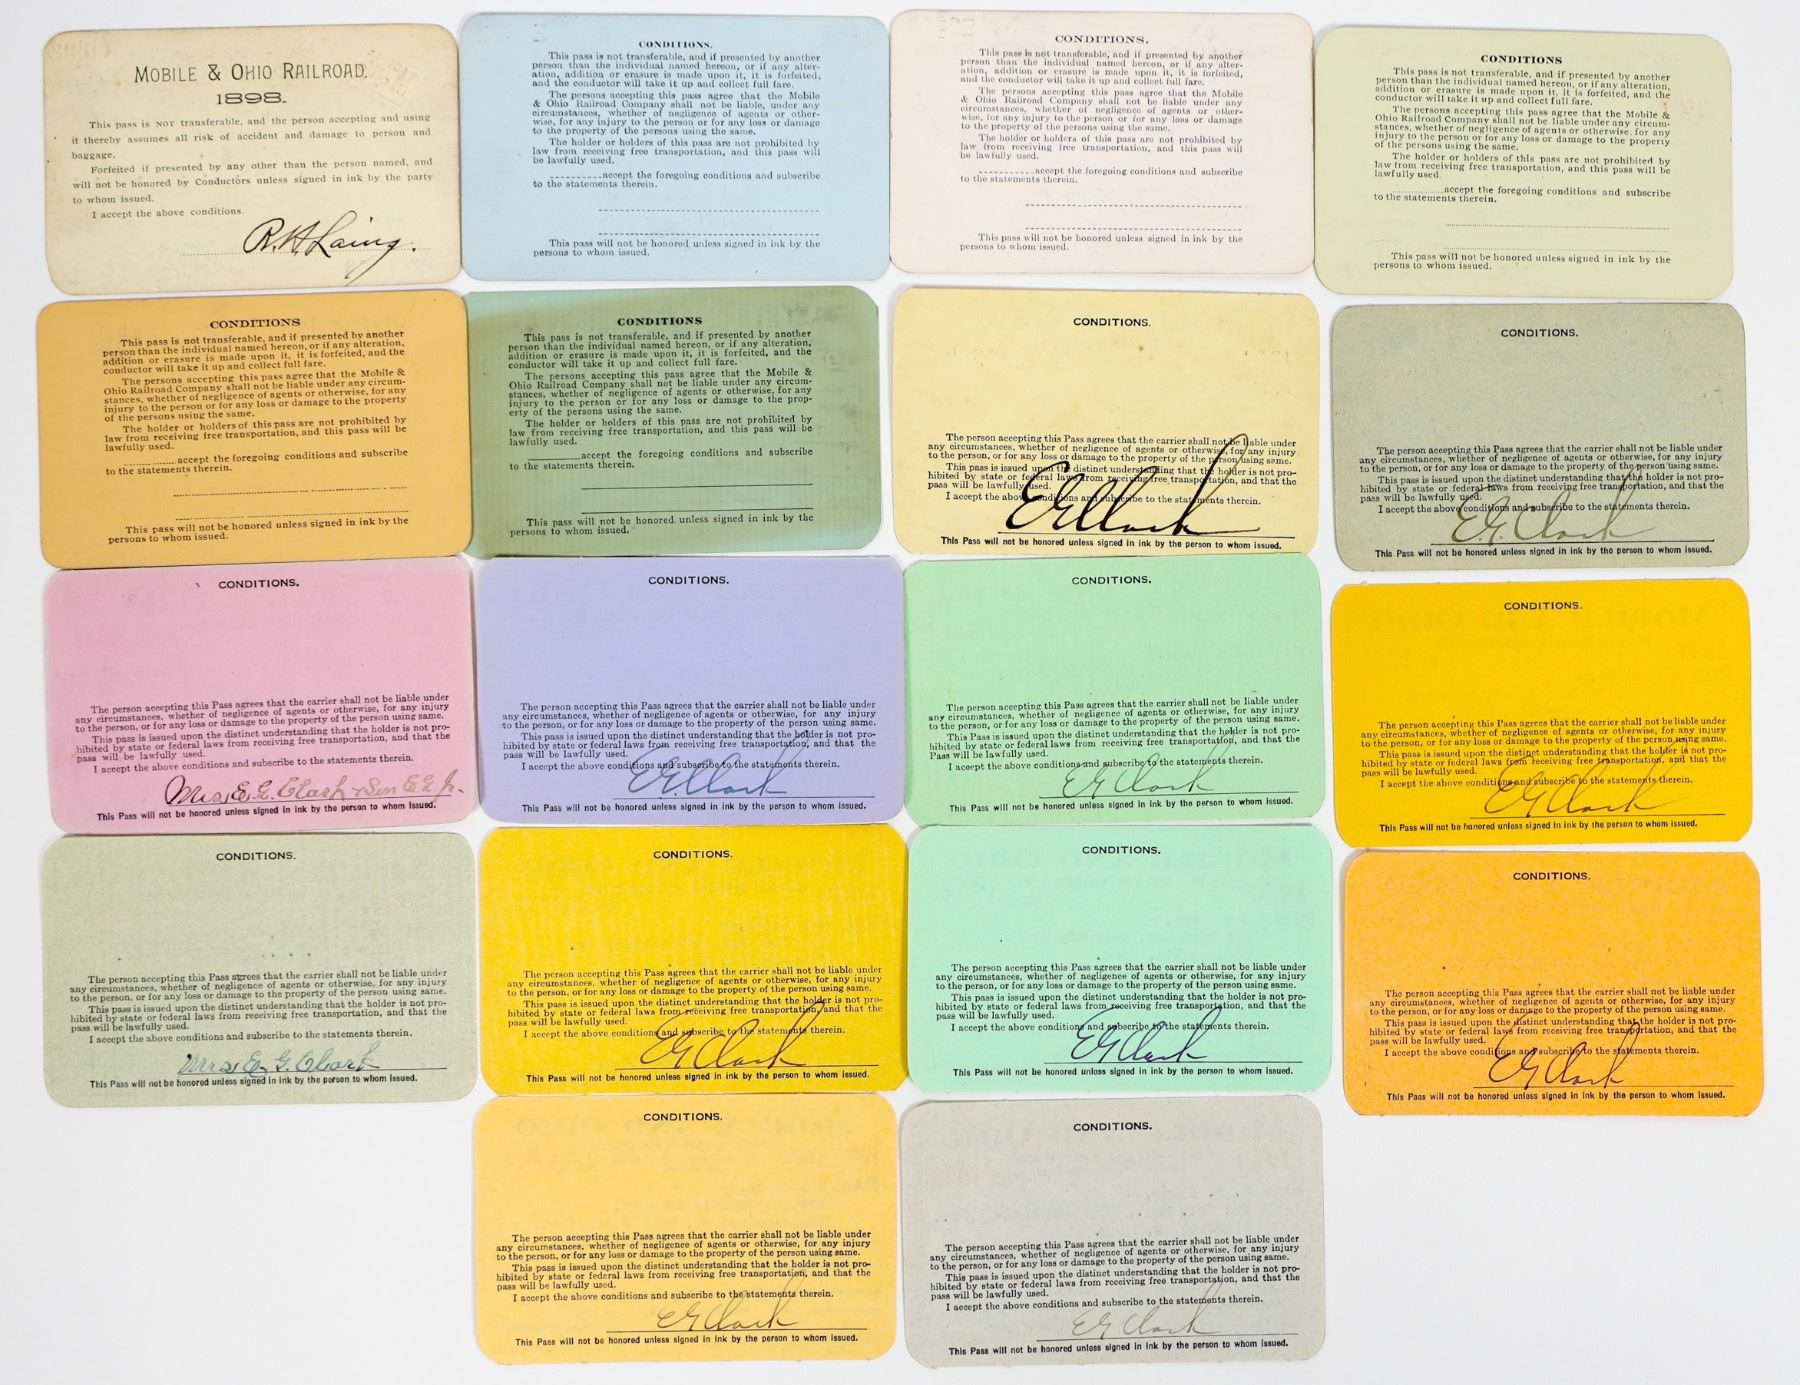 MOBILE & OHIO RAILROAD.
1898.
This pass is NOT transferable, and the person accepting and using
it thereby assumes all risk of accident and damage to person and
baggage.
Forfeited if presented by any other than the person named, and
will not be honored by Conductors unless signed in ink by the party
to whom issued.
I accept the above conditions.
R. H. Laing.
CONDITIONS.
This pass is not transferable, and if presented by another
person than the individual named hereon, or if any alter-
ation, addition or erasure is made upon it, it is forfeited,
and the conductor will take it up and collect full fare.
The persons accepting this pass agree that the Mobile
& Ohio Railroad Company shall not be liable, under any
circumstances, whether of negligence of agents or other-
wise, for any injury to the person or for any loss or damage
to the property of the persons using the same.
The holder or holders of this pass are not prohibited by
law from receiving free transportation, and this pass will
be lawfully used.
accept the foregoing conditions and subscribe
to the statements therein.
This pass will not be honored unless signed in ink by the
persons to whom issued.
CONDITIONS.
This pass is not transferable, and if presented by another
person than the individual named hereon, or if any alter-
ation, addition or erasure is made upon it, it is forfeited,
and the conductor will take it up and collect full fare.
The persons accepting this pass agree that the Mobile
& Ohio Railroad Company shall not be liable, under any
circumstances, whether of negligence of agents or other-
wise, for any injury to the person or for any loss or damage
to the property of the persons using the same.
The holder or holders of this pass are not prohibited by
law from receiving free transportation, and this pass will
be lawfully used.
accept the foregoing conditions and subscribe
to the statements therein.
This pass will not be honored unless signed in ink by the
persons to whom issued.
CONDITIONS
This pass is not transferable, and if presented by another
person than the individual named hereon, or if any alteration,
addition or erasure is made upon it, it is forfeited, and the
conductor will take it up and collect full fare.
The persons accepting this pass agree that the Mobile &
Ohio Railroad Company shall not be liable under any circum-
stances, whether of negligence of agents or otherwise, for any
injury to the person or for any loss or damage to the property
of the persons using the same.
The holder or holders of this pass are not prohibited by
law from receiving free transportation, and this pass will be
lawfully used.
accept the foregoing conditions and subscribe
to the statements therein.
This pass will not be honored unless signed in ink by the
persons to whom issued.
CONDITIONS
This pass is not transferable, and if presented by another
person than the individual named hereon, or if any alteration,
addition or erasure is made upon it, it is forfeited, and the
conductor will take it up and collect full fare.
The persons accepting this pass agree that the Mobile &
Ohio Railroad Company shall not be liable under any circum-
stances, whether of negligence of agents or otherwise, for any
injury to the person or for any loss or damage to the property
of the persons using the same.
The holder or holders of this pass are not prohibited by
law from receiving free transportation, and this pass will be
lawfully used.
accept the foregoing conditions and subscribe
to the statements therein.
This pass will not be honored unless signed in ink by the
persons to whom issued.
CONDITIONS
This pass is not transferable, and if presented by another
person than the individual named hereon, or if any alteration,
addition or erasure is made upon it, it is forfeited, and the
conductor will take it up and collect full fare.
The persons accepting this pass agree that the Mobile &
Ohio Railroad Company shall not be liable under any circum-
stances, whether of negligence of agents or otherwise, for any
injury to the person or for any loss or damage to the prop-
erty of the persons using the same.
The holder or holders of this pass are not prohibited by
law from receiving free transportation, and this pass will be
lawfully used.
accept the foregoing conditions and subscribe
to the statements therein.
This pass will not be honored unless signed in ink by the
persons to whom issued.
CONDITIONS.
The person accepting this Pass agrees that the carrier shall not be liable under
any circumstances, whether of negligence of agents or otherwise, for any injury
to the person, or for any loss or damage to the property of the person using same.
This pass is issued upon the distinct understanding that the holder is not pro-
hibited by state or federal laws from receiving free transportation, and that the
pass will be lawfully used.
I accept the above conditions and subscribe to the statements therein.
E G Clark
This Pass will not be honored unless signed in ink by the person to whom issued.
CONDITIONS.
The person accepting this Pass agrees that the carrier shall not be liable under
any circumstances, whether of negligence of agents or otherwise, for any injury
to the person, or for any loss or damage to the property of the person using same.
This pass is issued upon the distinct understanding that the holder is not pro-
hibited by state or federal laws from receiving free transportation, and that the
pass will be lawfully used.
I accept the above conditions and subscribe to the statements therein.
E. G. Clark
This Pass will not be honored unless signed in ink by the person to whom issued.
CONDITIONS.
The person accepting this Pass agrees that the carrier shall not be liable under
any circumstances, whether of negligence of agents or otherwise, for any injury
to the person, or for any loss or damage to the property of the person using same.
This pass is issued upon the distinct understanding that the holder is not pro-
hibited by state or federal laws from receiving free transportation, and that the
pass will be lawfully used.
I accept the above conditions and subscribe to the statements therein.
Mrs. E. G. Clark & Son E. G. Jr.
This Pass will not be honored unless signed in ink by the person to whom issued.
CONDITIONS.
The person accepting this Pass agrees that the carrier shall not be liable under
any circumstances, whether of negligence of agents or otherwise, for any injury
to the person, or for any loss or damage to the property of the person using same.
This pass is issued upon the distinct understanding that the holder is not pro-
hibited by state or federal laws from receiving free transportation, and that the
pass will be lawfully used.
I accept the above conditions and subscribe to the statements therein.
E. G. Clark
This Pass will not be honored unless signed in ink by the person to whom issued.
CONDITIONS.
The person accepting this Pass agrees that the carrier shall not be liable under
any circumstances, whether of negligence of agents or otherwise, for any injury
to the person, or for any loss or damage to the property of the person using same.
This Pass is issued upon the distinct understanding that the holder is not pro-
hibited by state or federal laws from receiving free transportation, and that the
Pass will be lawfully used.
I accept the above conditions and subscribe to the statements therein.
E G Clark
This Pass will not be honored unless signed in ink by the person to whom issued.
CONDITIONS.
The person accepting this Pass agrees that the carrier shall not be liable under
any circumstances, whether of negligence of agents or otherwise, for any injury
to the person, or for any loss or damage to the property of the person using same.
This pass is issued upon the distinct understanding that the holder is not pro-
hibited by state or federal laws from receiving free transportation, and that the
pass will be lawfully used.
I accept the above conditions and subscribe to the statements therein.
E G Clark
This Pass will not be honored unless signed in ink by the person to whom issued.
CONDITIONS.
The person accepting this Pass agrees that the carrier shall not be liable under
any circumstances, whether of negligence of agents or otherwise, for any injury
to the person, or for any loss or damage to the property of the person using same.
This pass is issued upon the distinct understanding that the holder is not pro-
hibited by state or federal laws from receiving free transportation, and that the
pass will be lawfully used.
I accept the above conditions and subscribe to the statements therein.
Mrs E. G. Clark
This Pass will not be honored unless signed in ink by the person to whom issued.
CONDITIONS.
The person accepting this Pass agrees that the carrier shall not be liable under
any circumstances, whether of negligence of agents or otherwise, for any injury
to the person, or for any loss or damage to the property of the person using same.
This pass is issued upon the distinct understanding that the holder is not pro-
hibited by state or federal laws from receiving free transportation, and that the
pass will be lawfully used.
I accept the above conditions and subscribe to the statements therein.
E G Clark
This Pass will not be honored unless signed in ink by the person to whom issued.
CONDITIONS.
The person accepting this Pass agrees that the carrier shall not be liable under
any circumstances, whether of negligence of agents or otherwise, for any injury
to the person, or for any loss or damage to the property of the person using same.
This pass is issued upon the distinct understanding that the holder is not pro-
hibited by state or federal laws from receiving free transportation, and that the
pass will be lawfully used.
I accept the above conditions and subscribe to the statements therein.
E G Clark
This Pass will not be honored unless signed in ink by the person to whom issued.
CONDITIONS.
The person accepting this Pass agrees that the carrier shall not be liable under
any circumstances, whether of negligence of agents or otherwise, for any injury
to the person, or for any loss or damage to the property of the person using same.
This pass is issued upon the distinct understanding that the holder is not pro-
hibited by state or federal laws from receiving free transportation, and that the
pass will be lawfully used.
I accept the above conditions and subscribe to the statements therein.
E G Clark
This Pass will not be honored unless signed in ink by the person to whom issued.
CONDITIONS.
The person accepting this Pass agrees that the carrier shall not be liable under
any circumstances, whether of negligence of agents or otherwise, for any injury
to the person, or for any loss or damage to the property of the person using same.
This pass is issued upon the distinct understanding that the holder is not pro-
hibited by state or federal laws from receiving free transportation, and that the
pass will be lawfully used.
I accept the above conditions and subscribe to the statements therein.
E G Clark
This Pass will not be honored unless signed in ink by the person to whom issued.
CONDITIONS.
The person accepting this Pass agrees that the carrier shall not be liable under
any circumstances, whether of negligence of agents or otherwise, for any injury
to the person, or for any loss or damage to the property of the person using same.
This pass is issued upon the distinct understanding that the holder is not pro-
hibited by state or federal laws from receiving free transportation, and that the
pass will be lawfully used.
I accept the above conditions and subscribe to the statements therein.
E G Clark
This Pass will not be honored unless signed in ink by the person to whom issued.